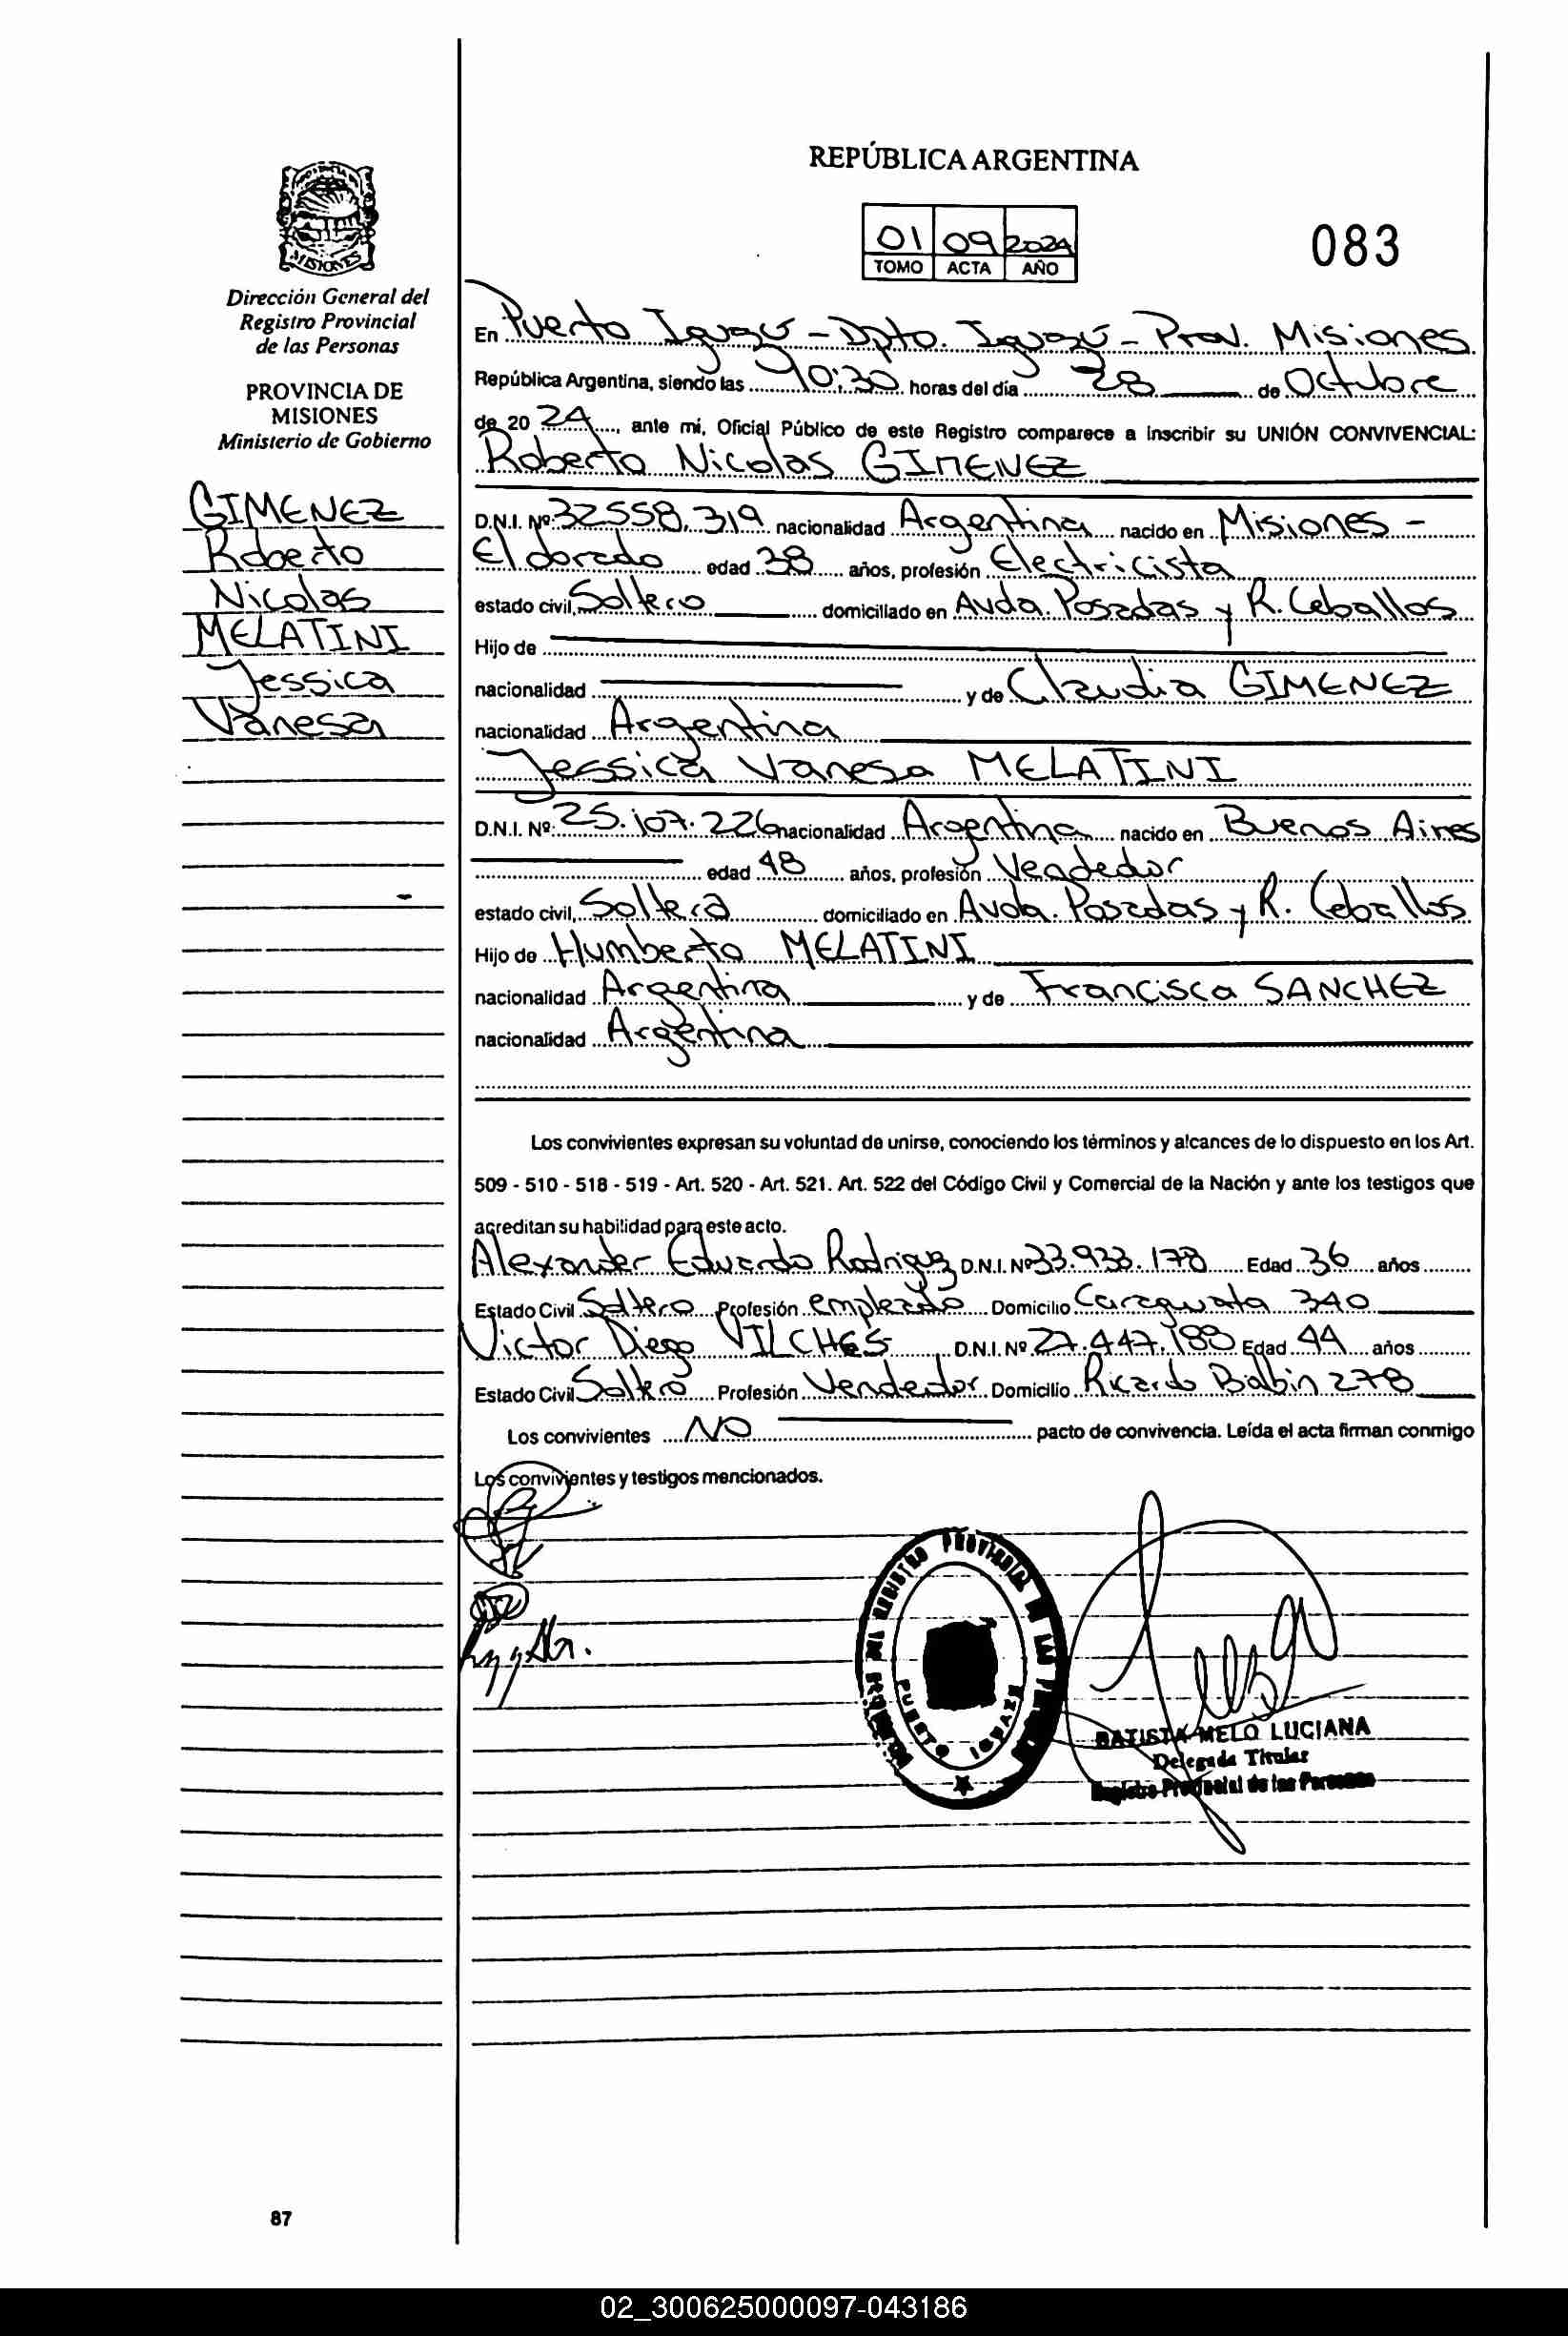 REPÚBLICA ARGENTINA
01 09 2024
TOMO ACTA AÑO
083
MISIONES
Dirección General del
Registro Provincial
de las Personas
PROVINCIA DE
MISIONES
Ministerio de Gobierno
GIMENEZ
Roberto
Nicolas
MELATINI
Jessica
Vanesa
En Puerto Iguazú - Dpto. Iguazú - Prov. Misiones
República Argentina, siendo las 10:30 horas del día 28 de Octubre
de 20 24, ante mí, Oficial Público de este Registro comparece a inscribir su UNIÓN CONVIVENCIAL:
Roberto Nicolas GIMENEZ
D.N.I. Nº: 32.558.319 nacionalidad Argentina nacido en Misiones -
Eldorado edad 38 años, profesión Electricista
estado civil, Soltero domiciliado en Avda. Posadas y R. Ceballos
Hijo de
nacionalidad y de Claudia GIMENEZ
nacionalidad Argentina
Jessica Vanesa MELATINI
D.N.I. Nº: 25.107.226 nacionalidad Argentina nacido en Buenos Aires
edad 48 años, profesión Vendedor
estado civil, Soltera domiciliado en Avda. Posadas y R. Ceballos
Hijo de Humberto MELATINI
nacionalidad Argentina y de Francisca SANCHEZ
nacionalidad Argentina
Los convivientes expresan su voluntad de unirse, conociendo los términos y alcances de lo dispuesto en los Art.
509 - 510 - 518 - 519 - Art. 520 - Art. 521. Art. 522 del Código Civil y Comercial de la Nación y ante los testigos que
acreditan su habilidad para este acto.
Alexander Eduardo Rodriguez D.N.I. Nº 33.933.178 Edad 36 años
Estado Civil Soltero Profesión empleado Domicilio Caraguata 340
Victor Diego VILCHES D.N.I. Nº 27.447.188 Edad 44 años
Estado Civil Soltero Profesión Vendedor Domicilio Ricardo Balbin 278
Los convivientes NO pacto de convivencia. Leída el acta firman conmigo
Los convivientes y testigos mencionados.
REGISTRO PROVINCIAL DE LAS PERSONAS
PUERTO IGUAZU
BATISTA MELO LUCIANA
Delegada Titular
Registro Provincial de las Personas
87
02_300625000097-043186